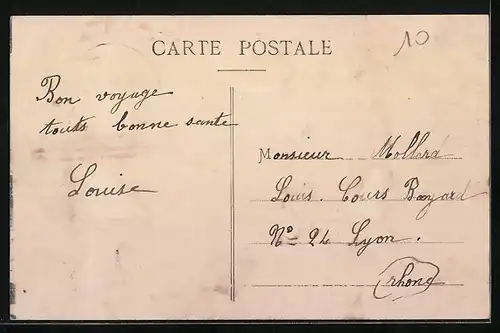 CARTE POSTALE
10
Bon voyage
touts bonne sante
Louise
Monsieur Mollard
Louis. Cours Bayard
No = 24 Lyon.
rhone